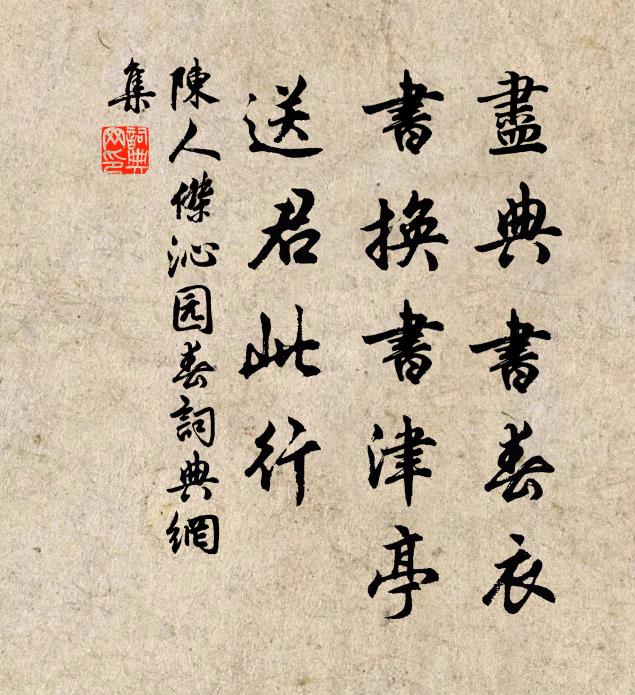 盡典書春衣
書換書津亭
送君此行
陳人傑沁园春詞典網
集
詞典網印